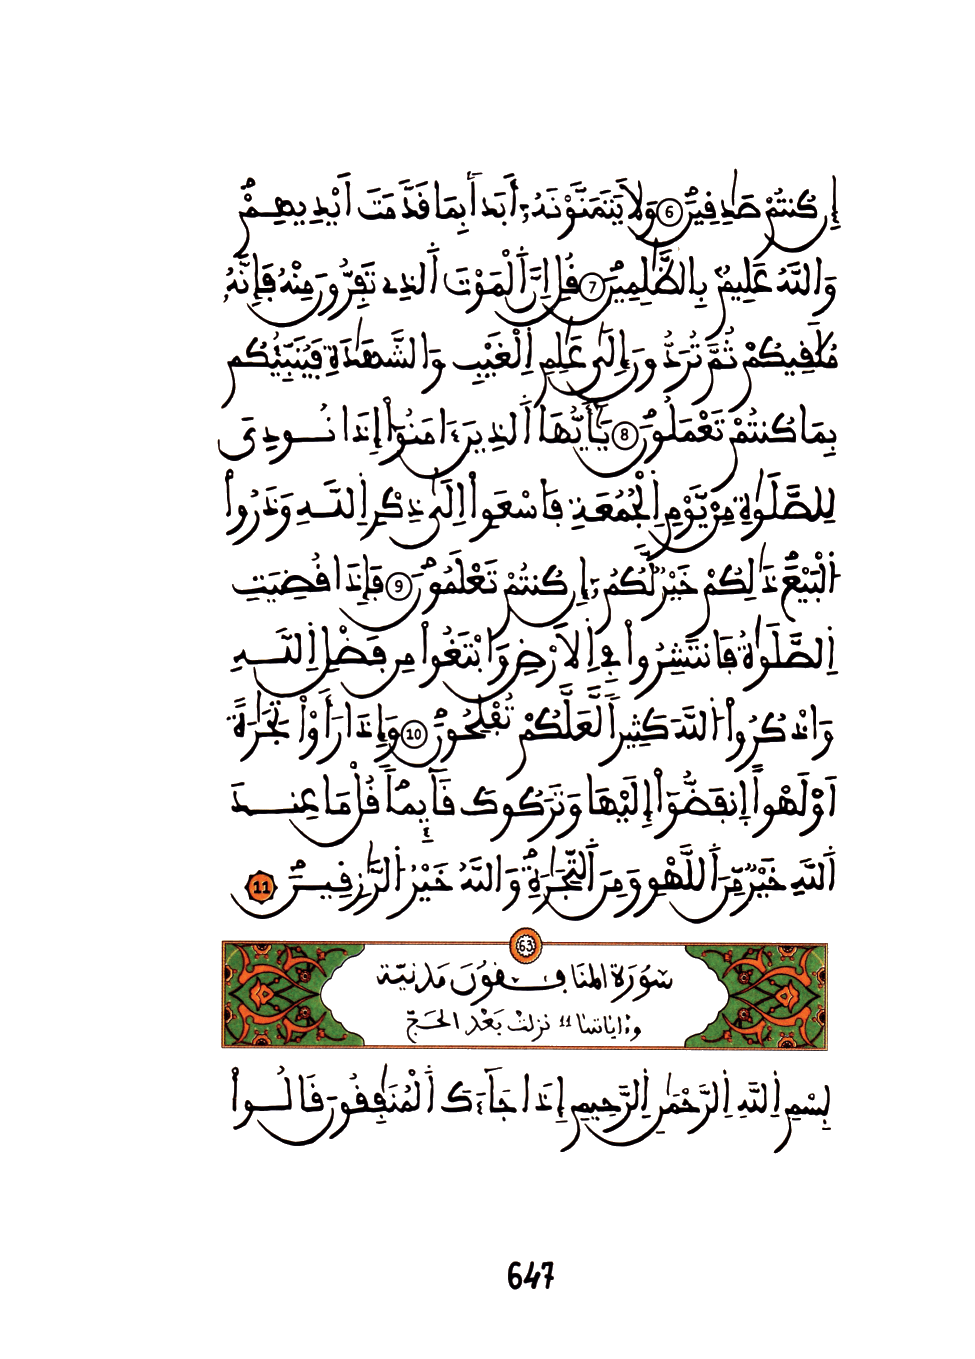 إِن كُنتُمْ صَٰدِقِينَ 6 وَلَا يَتَمَنَّوْنَهُۥٓ أَبَدَۢا بِمَا قَدَّمَتَ اَيْدِيهِمْ
وَاللَّهُ عَلِيمُۢ بِالظَّٰلِمِينَ 7 قُلِ اِنَّ اَلْمَوْتَ اَلذِے تَفِرُّونَ مِنْهُ فَإِنَّهُۥ
مُلَٰقِيكُمْ ثُمَّ تُرَدُّونَ إِلَىٰ عَٰلِمِ اِلْغَيْبِ وَالشَّهَٰدَةِ فَيُنَبِّئُكُم
بِمَا كُنتُمْ تَعْمَلُونَ 8 يَٰٓأَيُّهَا اَلذِينَ ءَامَنُوٓاْ إِذَا نُودِىَ
لِلصَّلَوٰةِ مِنْ يَّوْمِ اِلْجُمُعَةِ فَاسْعَوِاْ اِلَىٰ ذِكْرِ اِللَّهِ وَذَرُواْ
اُلْبَيْعَ ذَٰلِكُمْ خَيْرٌ لَّكُمُۥٓ إِن كُنتُمْ تَعْلَمُونَ 9 فَإِذَا قُضِيَتِ
اِلصَّلَوٰةُ فَانتَشِرُواْ فِے اِلَارْضِ وَابْتَغُواْ مِن فَضْلِ اِللَّهِ
وَاذْكُرُواْ اُللَّهَ كَثِيراً لَّعَلَّكُمْ تُفْلِحُونَ 10 وَإِذَا رَأَوْاْ تِجَٰرَةً
اَوْ لَهْواً إِنفَضُّوٓاْ إِلَيْهَا وَتَرَكُوكَ قَآئِماً قُلْ مَا عِندَ
اَللَّهِ خَيْرٌ مِّنَ اَللَّهْوِ وَمِنَ اَلتِّجَٰرَةِ وَاللَّهُ خَيْرُ اُلرَّٰزِقِينَ 11
63
سُورَة المنَافِقُونَ مَدنيّة
وءاياتها 11 نزلت بَعْد الحَجّ
بِسْمِ اِللَّهِ اِلرَّحْمَٰنِ اِلرَّحِيمِ إِذَا جَآءَكَ اَلْمُنَٰفِقُونَ قَالُواْ
647